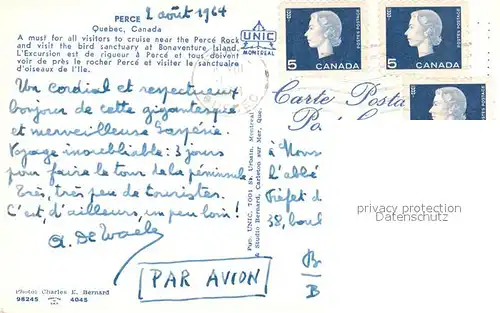 PERCE 2 août 1964
Quebec, Canada
A must for all visitors to cruise near the Percé Rock
and visit the bird sanctuary at Bonaventure Island.
L'Excursion est de rigueur à Percé et tous doivent
voir de près le rocher Percé et visiter le sanctuaire
d'oiseaux de l'Ile.
UNIC
MONTREAL
Un cordial et respectueux
bonjour de cette gigantesque
et merveilleuse Gaspésie.
Voyage incroyable: 3 jours
pour faire le tour de la péninsule
Très, très peu de touristes.
C'est, d'ailleurs, un peu loin!
A. De Waele
PAR AVION
Photo: Charles E. Bernard
98245 4045
Pub. UNIC, 7001 St. Urbain, Montreal
& Studio Bernard, Carleton sur Mer, Que
5 CANADA
POSTES POSTAGE
5 CANADA
POSTES POSTAGE
POSTES POSTAGE
Carte Posta
Po
à Mons
L'abbé
Préfet d
38, boul
B
B
privacy protection
Datenschutz